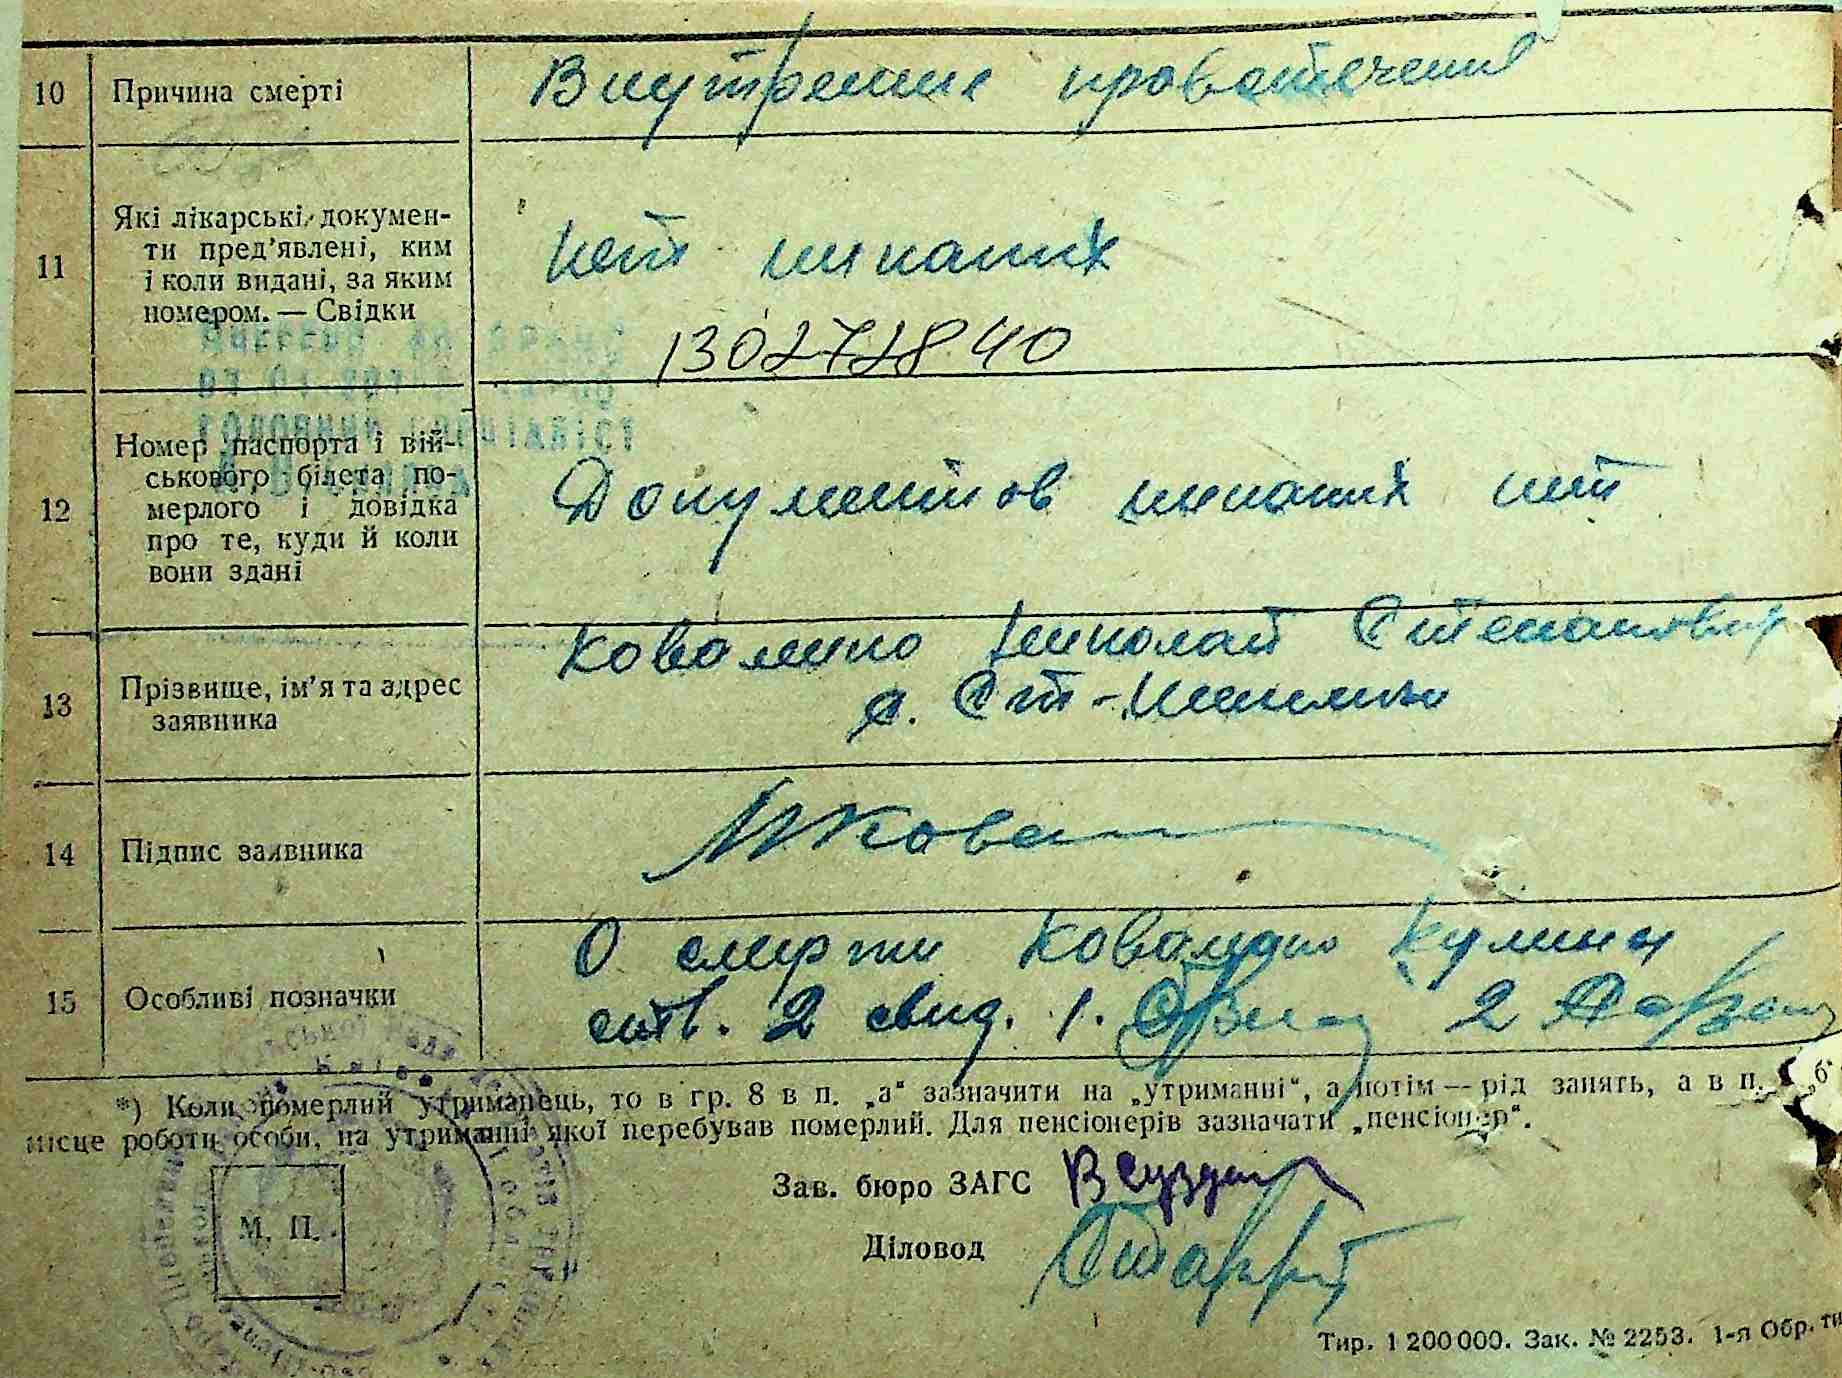 10
Причина смерті
Внутренне кровотечение
11
Які лікарські документ-
ти пред'явлені, ким
і коли видані, за яким
номером. — Свідки
нет никаких
130272840
12
Номер паспорта і вій-
ськового білета по-
мерлого і довідка
про те, куди й коли
вони здані
Документов никаких нет
13
Прізвище, ім'я та адрес
заявника
Коваленко Николай Степанович
с.
14
Підпис заявника
Кова
15
Особливі позначки
О смерти Коваленко Кулина
2 свид. 1. 2
*) Коли померлий утриманець, то в гр. 8 в п. „а“ зазначити на „утриманні“, а потім — рід занять, а в п. „б“
місце роботи особи, на утриманні якої перебував померлий. Для пенсіонерів зазначати „пенсіонер“.
Зав. бюро ЗАГС
М. П.
Діловод
Тир. 1 200 000. Зак. № 2253. 1-я Обр. ти